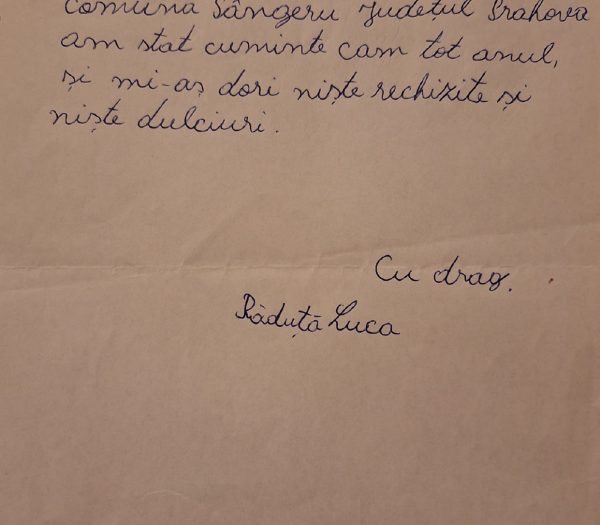 Comuna Sângeru Județul Prahova
am stat cuminte cam tot anul,
și mi-aș dori niște rechizite și
niște dulciuri.
Cu drag.
Răduță Luca